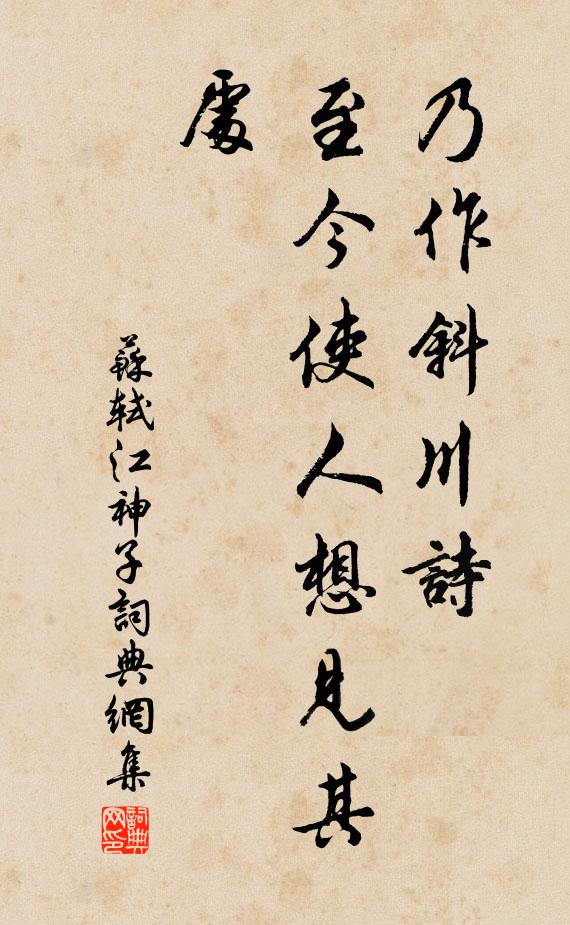 乃作斜川詩
至今使人想見其
處
蘇軾江神子詞典網集
詞典网印